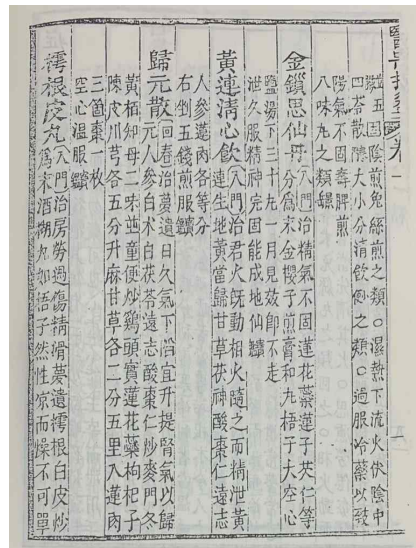 醫
卷一
粒五固陰煎兔絲煎之類○濕熱下流火伏陰中
四苓散膀大小分清飮倒之類○過服冷藥以致
陽氣不固壽脾煎
八味丸之類
金鎖思仙丹(入門)治精氣不固蓮花蘂蓮子芡仁等
分爲末金櫻子煎膏和丸梧子大空心
鹽湯下三十丸一月見效卽不走
泄久服精神完固能成地仙
黃蓮淸心飮(入門)治君火旣動相火隨之而精泄黃
連生地黃當歸甘草茯神酸棗仁遠志
人參蓮肉各等分
右剉五錢煎服
歸元散(回春)治夢遺日久氣下陷宜升提腎氣以歸
元人參白朮白茯苓遠志酸棗仁炒麥門冬
黃柏知母二味並童便炒鷄頭實蓮花蘂枸杞子
陳皮川芎各五分升麻甘草各二分五里入蓮肉
三箇棗一枚
空心溫服
樗根皮丸(入門)治房勞過傷精滑夢遺樗根白皮炒
爲末酒糊丸如梧子然性凉而燥不可單